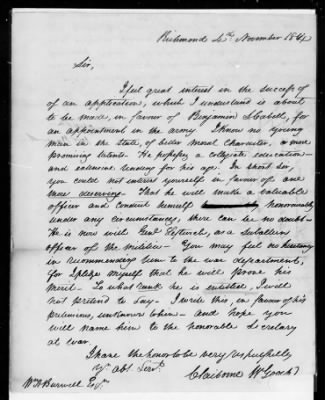 Richmond 4th November 1811
Sir,
I feel great interest in the success of
of an application, which I understand is about
to be made, in favour of Benjamin Cabell, for
an appointment in the army. I know no young
man in the state, of better moral character, or more
promising talents. He possesses a collegiate education
and extensive reading for his age. In short Sir,
you could not interest yourself in favour of one
more deserving. That he will make a valuable
officer and conduct himself honourably
under any circumstances, there can be no doubt.
He is now with as a subaltern
officer of the militia. You may feel no hesitancy
in recommending him to the war department,
for I pledge myself that he will prove his
merit. To what rank he is entitled, I will
not pretend to say. I write this, in favour of his
pretensions, unknown to him. and hope you
will name him to the honorable Secretary
at war.
I have the honor to be very respectfully
yr. obt. Servt.
Claiborne W Gooch
Wm A Burwell Esqr.